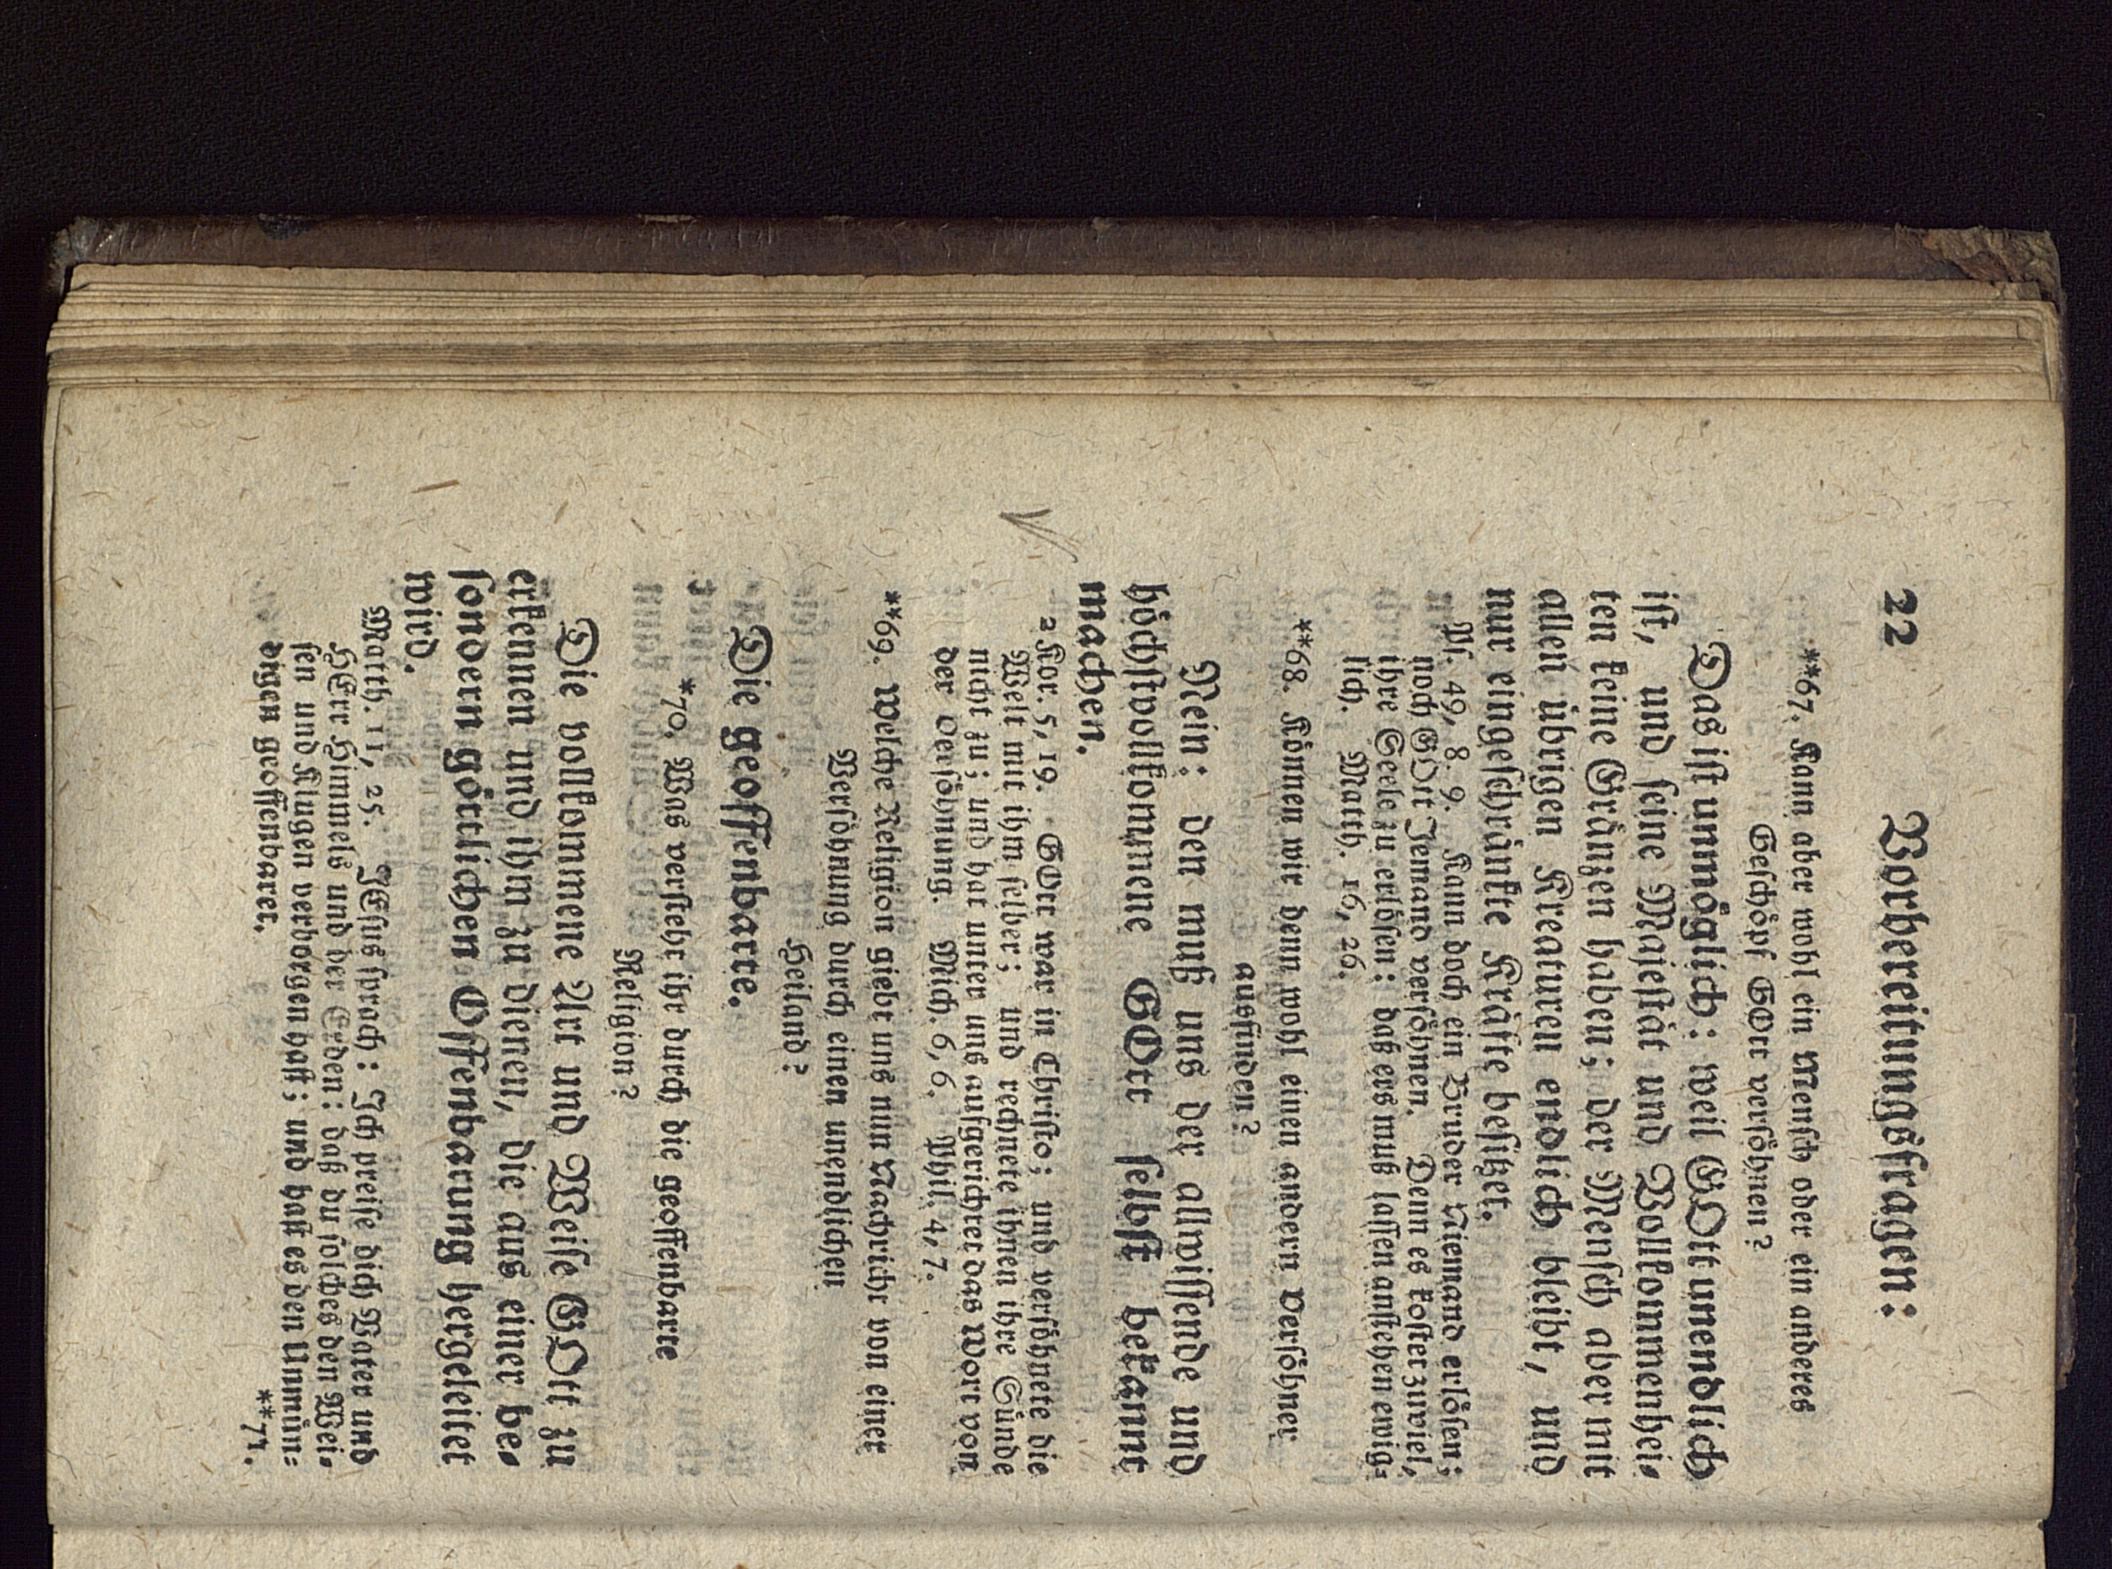 22 Vorbereitungsfragen:
**67. Kann aber wohl ein Mensch oder ein anderes
Geschöpf GOtt versöhnen?
Das ist unmöglich: weil GOtt unendlich
ist, und seine Majestät und Vollkommenhei-
ten keine Gränzen haben; der Mensch aber mit
allen übrigen Kreaturen endlich bleibt, und
nur eingeschränkte Kräfte besitzet.
Ps. 49, 8. 9. Kann doch ein Bruder Niemand erlösen;
noch GOtt Jemand versöhnen. Denn es kostet zuviel,
ihre Seele zu erlösen: daß ers muß lassen anstehen ewig-
lich. Matth. 16, 26.
**68. Können wir denn wohl einen andern Versöhner
ausfinden?
Nein; den muß uns der allwissende und
höchstvollkommene GOtt selbst bekannt
machen.
2 Kor. 5, 19. GOtt war in Christo; und versöhnete die
Welt mit ihm selber; und rechnete ihnen ihre Sünde
nicht zu; und hat unter uns aufgerichtet das Wort von
der Versöhnung. Mich. 6, 6. Phil. 4, 7.
**69. Welche Religion giebt uns nun Nachricht von einer
Versöhnung durch einen unendlichen
Heiland?
Die geoffenbarte.
*70. Was verstehr ihr durch die geoffenbarte
Religion?
Die vollkommene Art und Weise GOtt zu
erkennen und ihm zu dienen, die aus einer be-
sondern göttlichen Offenbarung hergeleitet
wird.
Matth. 11, 25. JEsus sprach: Ich preise dich Vater und
HErr Himmels und der Erden: daß du solches den Wei-
sen und Klugen verborgen hast; und hast es den Unmün-
digen geoffenbaret.
**71.